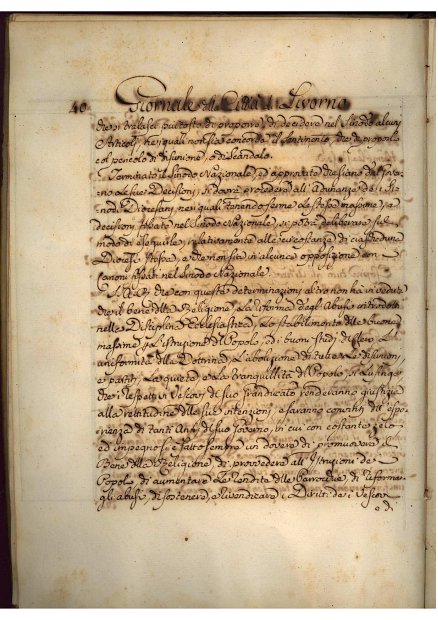 40 Giornale della Città di Livorno
che si tralasci piuttosto di proporre, o di decidere nel Sinodo alcuni
Articoli, nei quali non sia concorde il sentimento, che di proporli
col pericolo di disunione, o di scandalo.
Terminato il Sinodo Nazionale, ed approvate che siano dal
no le sue Decisioni, si dovrà procedere all'Adunanza dei Si
nodi Diocesani, nei quali tenendo ferme le stesse massime, e
decisioni fissate nel Sinodo Nazionale, si potrà deliberare sul
modo di eseguirle relativamente alle circostanze di ciascheduna
Diocesi stessa, e che non sia in alcuna opposizione con
Canoni fissati nel Sinodo Nazionale.
S.A.R. che con queste determinazioni altro non ha in veduta
che il bene della Religione, la riforma degli Abusi introdotti
nella Disciplina Ecclesiastica, lo stabilimento delle buone
massime per l'istruzione del Popolo, ed i buoni studj del Clero, l'
uniformità della Dottrina, l'abolizione di tutte le disunioni,
e partiti, la quiete, e la tranquillità del Popolo, si lusinga
che i rispettivi Vescovi di suo Granducato renderanno giustizia
alla rettitudine delle sue intenzioni, e saranno convinti dall'espe
rienza di tanti Anni di suo Governo, in cui con costante zelo
ed impegno si è fatto sempre un dovere di promuovere il
Bene della Religione, di provvedere all'Istruzione del
Popolo, di aumentare le rendite delle Parrocchie, di riforma
gli abusi, di sostenere, e rivendicare i Diritti dei Vescovi
e di